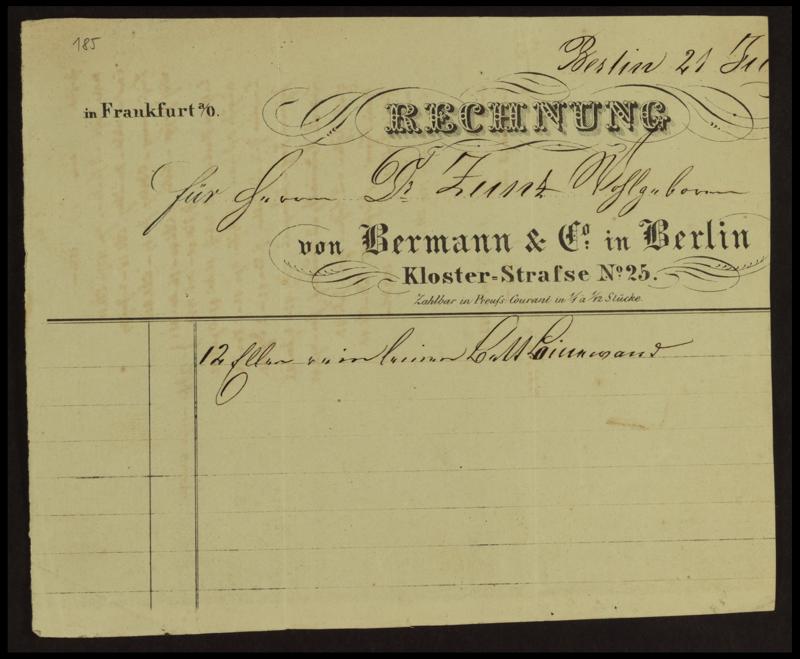 185
Berlin 21 Ju
in Frankfurt a/O.
RECHNUNG
für Herrn Dr. Zunz Wohlgeboren
von Bermann & Co. in Berlin
Kloster=Straſse No. 25.
Zahlbar in Preuſs. Courant in 1/1 a 1/12 Stücke.
12 Ellen rein leinen Bett Leinewand